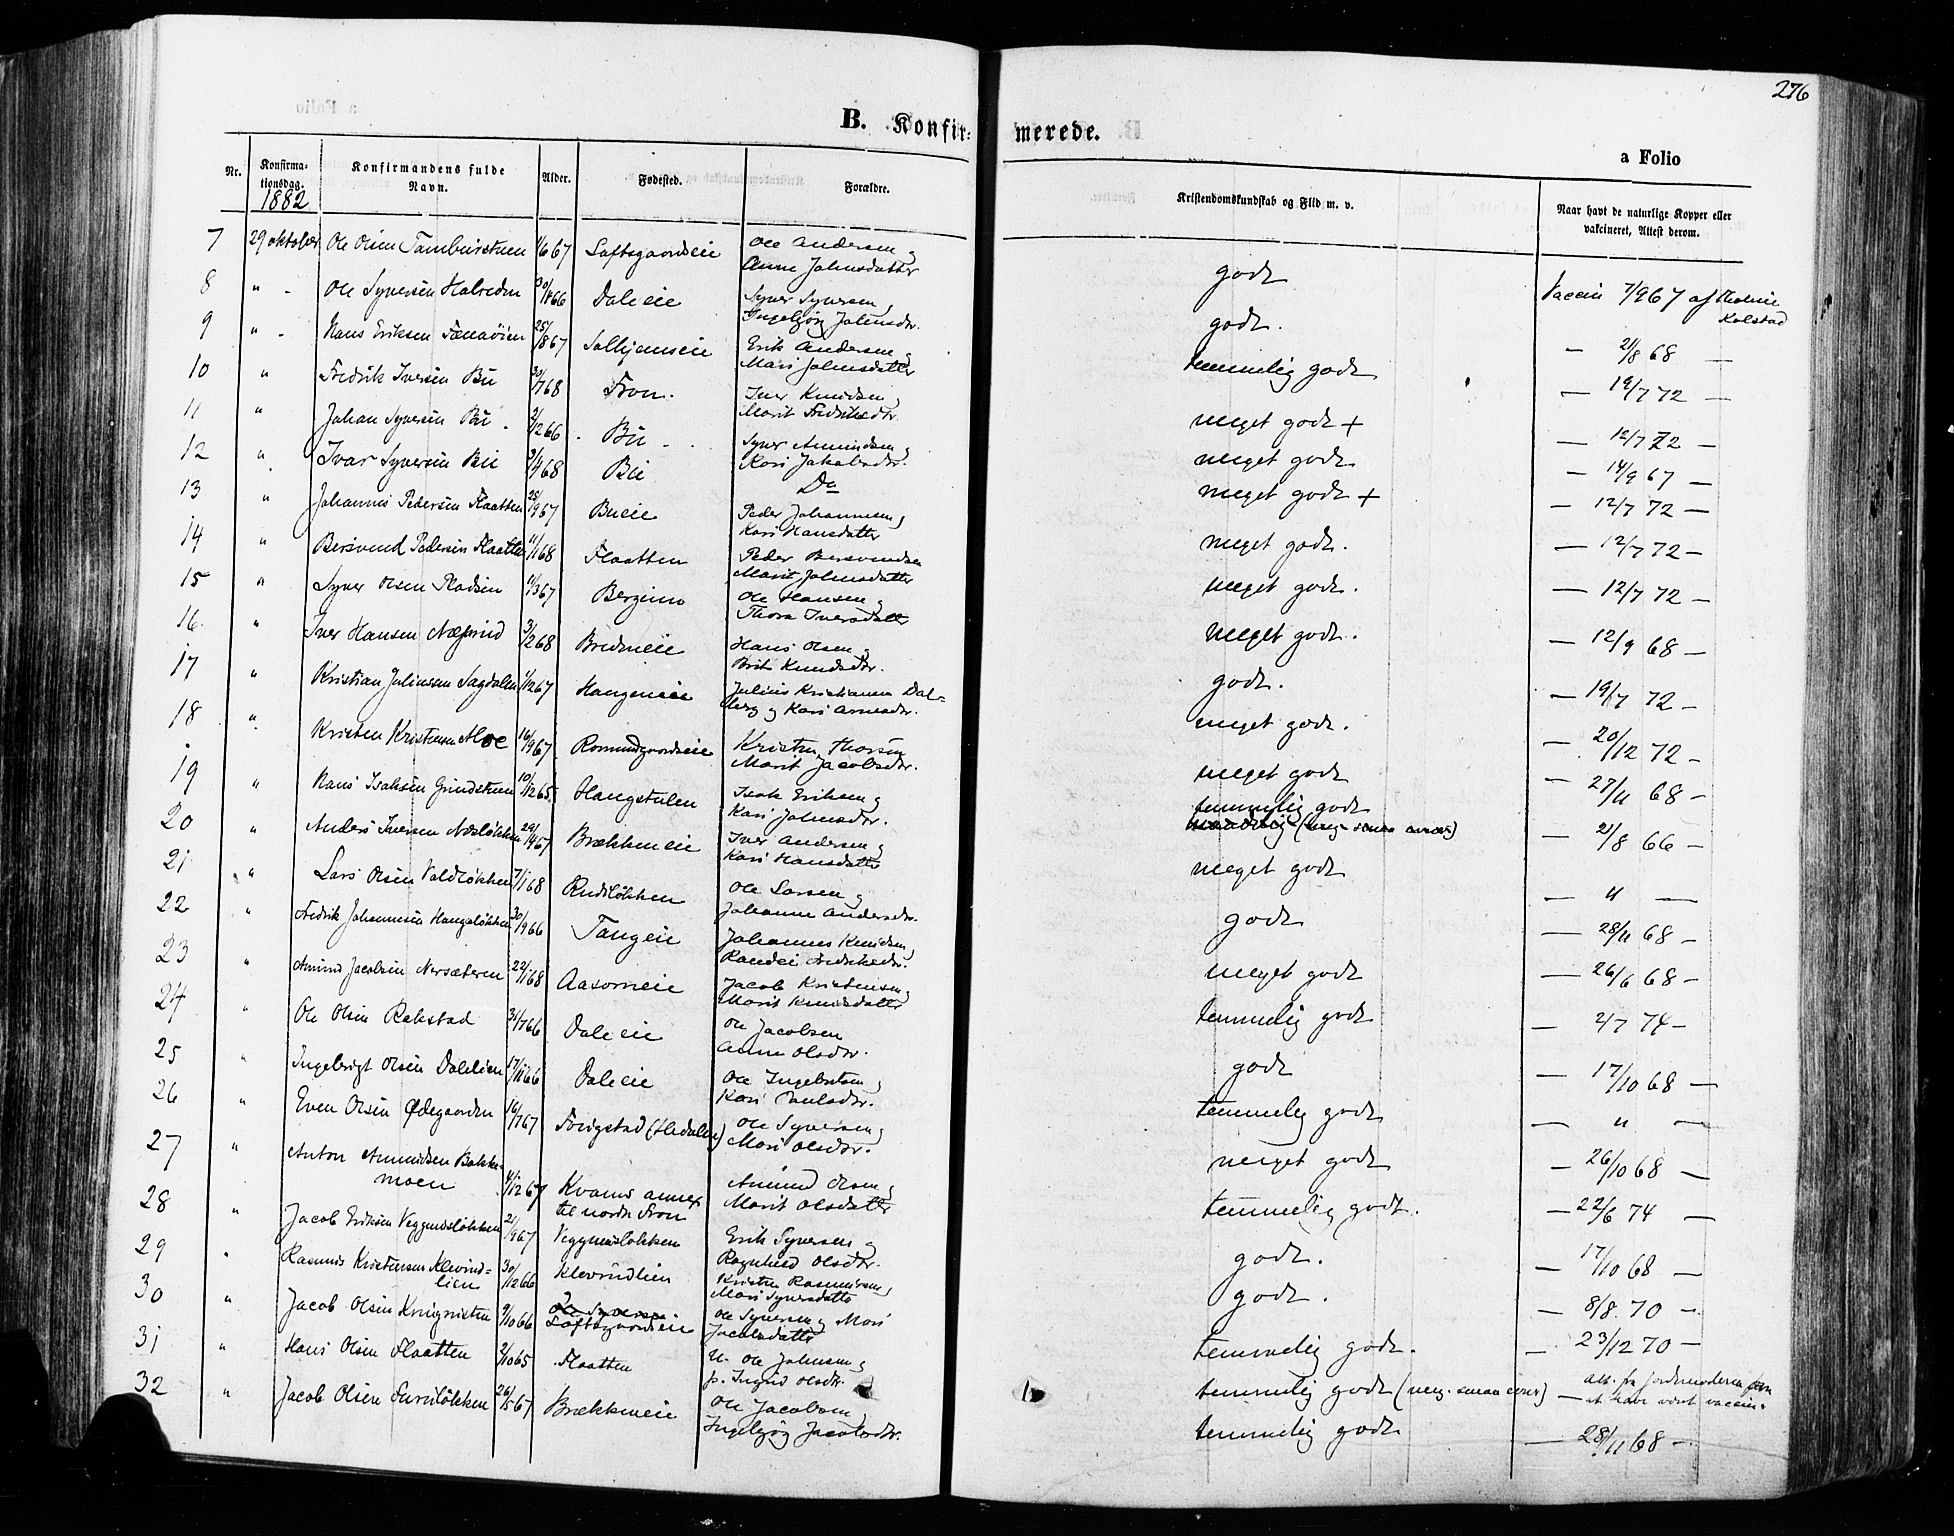 276
B. Konfir-merede.
a Folio
Nr.
Konfirma-
tionsdag.
1882
Konfirmandens fulde
Navn.
Alder.
Fødested.
Forældre.
Kristendomskundskab og Flid m. v.
Naar havt de naturlige Kopper eller
vakcineret, Attest derom.
7 29 oktober Ole Olsen 1/6 67 Loftsgaardseie Ole Andersen og
Anne Johnsdatter godt Vaccin 7/9 67 af
Kolstad
8 " - Ole Syversen 66 Daleeie Syver Syversen,
Ingebjørg Johnsdr. godt. — 21/8 68 —
9 " - Hans Eriksen 25/8 67 Solhjemseie Erik Andersen og
Mari Johnsdatter temmelig godt — 19/7 72 —
10 " Fredrik Iversen Bu 30/7 68 Fron. Iver Knudsen,
Marit Fredriksdr. meget godt + — 12/7 72 —
11 " Johan Syversen Bu 2/12 66 Bu Syver Amundsen,
Kari Jakobsdr. meget godt — 14/9 67 —
12 " Ivar Syversen Bu 68 Bu Do meget godt + — 12/7 72 —
13 " Johannes Pedersen Flaatten 25/9 67 Bueie Peder Johannesen,
Kari Hansdatter meget godt. — 12/7 72 —
14 " Bersvend Pedersen Flaatten 11/1 68 Flaatten Peder Bersvendsen
Marit Johnsdatter meget godt. — 12/7 72 —
15 " Syver Olsen Pladsen 11/3 67 Bergum Ole Hansen og
Thora Iversdatter meget godt. — 12/9 68 —
16 " Iver Hansen 3/2 68 Bredineie Hans Olsen og
Brit Knudsdr. godt. — 19/7 72 —
17 " Kristian Juliussen Sagdalen 1/12 67 Haugeneie Julius Kristiansen Dal-
berg og Kari Arnesdr. meget godt. — 20/12 72 —
18 " Kristen Kristensen Moe 16/9 67 Romundgaardseie Kristen Thorsen
Marit Jacobsdr. meget godt — 27/11 68 —
19 " Hans Isaksen Grindstuen 10/12 65 Haugstulen Isak Eriksen og
Kari Johnsdr. temmelig godt
— 21/8 66 —
20 " Anders Iversen 29/4 67 Brækkeneie Iver Andersen og
Kari Hansdatter meget godt — " —
21 " Lars Olsen Voldløkken 7/1 68 Rudiløkken Ole Larsen og
Johanne Andersdr. godt — 28/11 68 —
22 " Fredrik Johannesen Haugeløkken 30/9 66 Tangeie Johannes Knudsen,
Randei Fredriksdr. meget godt — 26/6 68 —
23 " Amund Jacobsen Nersæteren 22/1 68 Aasorneie Jacob Kristensen,
Marit Knudsdatter temmelig godt — 2/7 74 —
24 " Ole Olsen Rakstad 31/7 66 Daleeie Ole Jacobsen
Anne Olsdr. godt — 17/10 68 —
25 " Ingebrigt Olsen Dalelien 17/11 66 Daleeie Ole Ingebretsen,
Kari Paulsdr. temmelig godt — " —
26 " Even Olsen Ødegaarden 16/7 67 Forigstad (Hedalen) Ole Syversen,
Mari Olsdr. meget godt — 26/10 68 —
27 " Anton Amundsen Bakke-
moen 4/12 67 Kvams annex
til nordre Fron Amund Olsen,
Marit Olsdatter temmelig godt. — 22/6 74 —
28 " Jacob Eriksen Veggumsløkken 21/9 67 Veggumsløkken Erik Syversen og
Ragnhild Olsdr. godt. — 17/10 68 —
29 " Rasmus Kristensen Klevrud-
lien 30/12 66 Klevrudlien Kristen Rasmussen,
Mari Syversdatter godt. — 8/8 70 —
30 " Jacob Olsen 9/10 66 Loftsgaardseie Ole Syversen og Mari
Jacobsdatter temmelig godt. — 23/12 70 —
31 " Hans Olsen Flaatten 2/10 65 Flaatten U. Ole Johnsen og
p. Ingrid Olsdr. temmelig godt (meg. smaa evner) — att. fra Jordemoderen
at have været vaccin.
32 " Jacob Olsen Furuløkken 26/5 67 Brækkeneie Ole Jacobsen,
Ingebjørg Jacobsdr. temmelig godt — 28/11 68 —